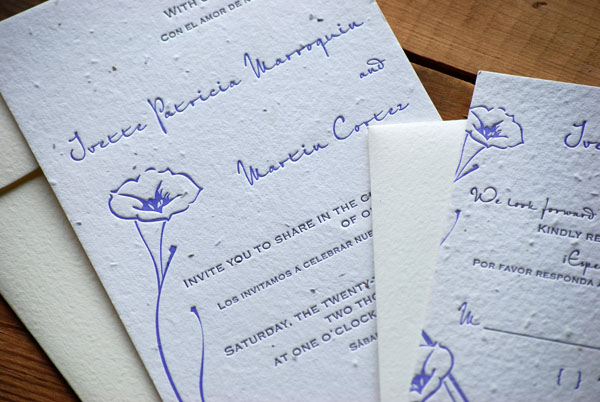 WITH
CON EL AMOR DE
Ivette Patricia Marroquin
and
Martin Cortez
INVITE YOU TO SHARE IN THE
OF
LOS INVITAMOS A CELEBRAR
SATURDAY, THE TWENTY-
TWO THO
AT ONE O'CLOCK
SÁBA
We look forward
KINDLY RE
¡Espe
POR FAVOR RESPONDA
M
( )